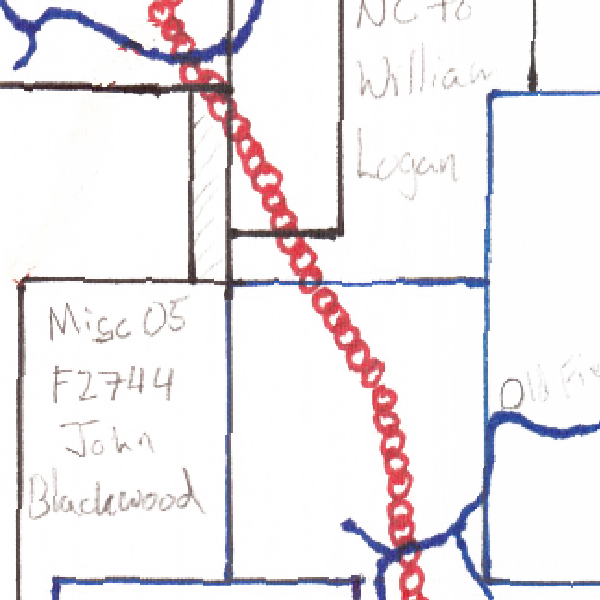 NC to
William
Logan
Misc 05
F2744
John
Blackwood
Old